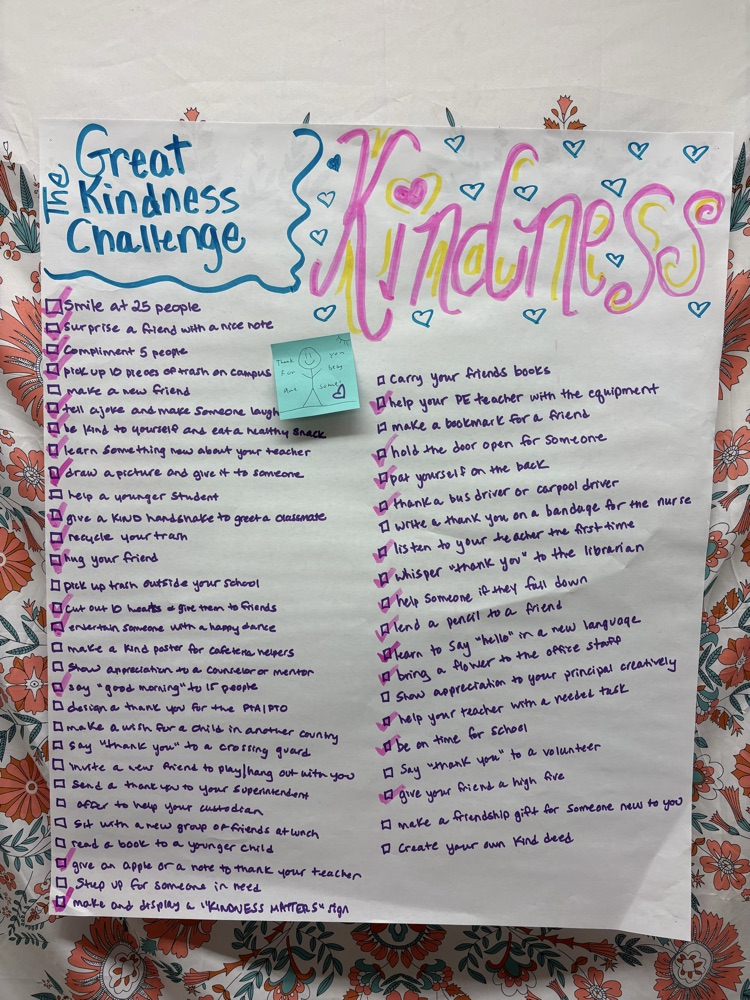 The Great
Kindness
Challenge
Kindness
Smile at 25 people
surprise a friend with a nice note
Compliment 5 people
pick up 10 pieces of trash on campus
make a new friend
tell a joke and make someone laugh
be kind to yourself and eat a healthy snack
learn something new about your teacher
draw a picture and give it to someone
help a younger student
give a KIND handshake to greet a classmate
recycle your trash
hug your friend
pick up trash outside your school
cut out 10 hearts & give them to friends
entertain someone with a happy dance
make a kind poster for cafeteria helpers
Show appreciation to a counselor or mentor
say "good morning" to 15 people
design a thank you for the PTA/PTO
make a wish for a child in another country
say "thank you" to a crossing guard
invite a new friend to play/hang out with you
send a thank you to your superintendent
offer to help your custodian
sit with a new group of friends at lunch
read a book to a younger child
give an apple or a note to thank your teacher
Step up for someone in need
make and display a "KINDNESS MATTERS" sign
Thank you
for being
some
carry your friends books
help your PE teacher with the equipment
make a bookmark for a friend
hold the door open for someone
pat yourself on the back
thank a bus driver or carpool driver
write a thank you on a bandage for the nurse
listen to your teacher the first time
whisper "thank you" to the librarian
help someone if they fall down
lend a pencil to a friend
learn to say "hello" in a new language
bring a flower to the office staff
Show appreciation to your principal creatively
help your teacher with a needed task
be on time for school
Say "thank you" to a volunteer
give your friend a high five
make a friendship gift for someone new to you
create your own kind deed